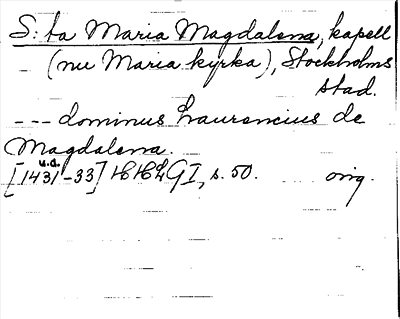 S:ta Maria Magdalena, kapell
(nu Maria kyrka), Stockholms
stad.
--- dominus Laurencius de
Magdalena.
u.a.
[1431-33] HHLGI, s. 50. orig.